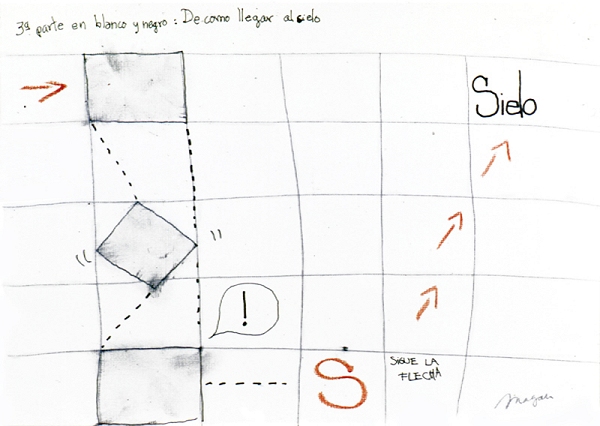 3ª parte en blanco y negro: De como llegar al sielo
Sielo
!
S
SIGUE LA
FLECHA